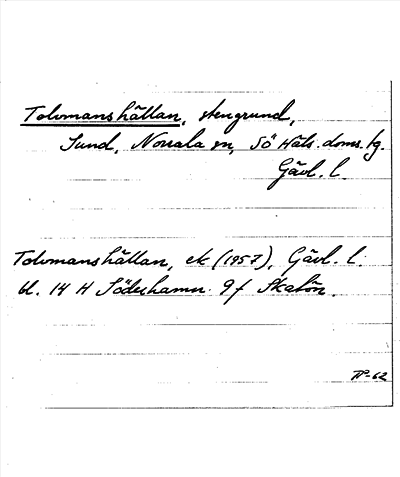 Tolvmanshällan, stengrund,
Sund, Norrala sn, Sö Häls. doms. tg.
Gävl. l.
Tolvmanshällan, ek (1957), Gävl. l.
bl. 14 H Söderhamn 9f Skatön.
-62